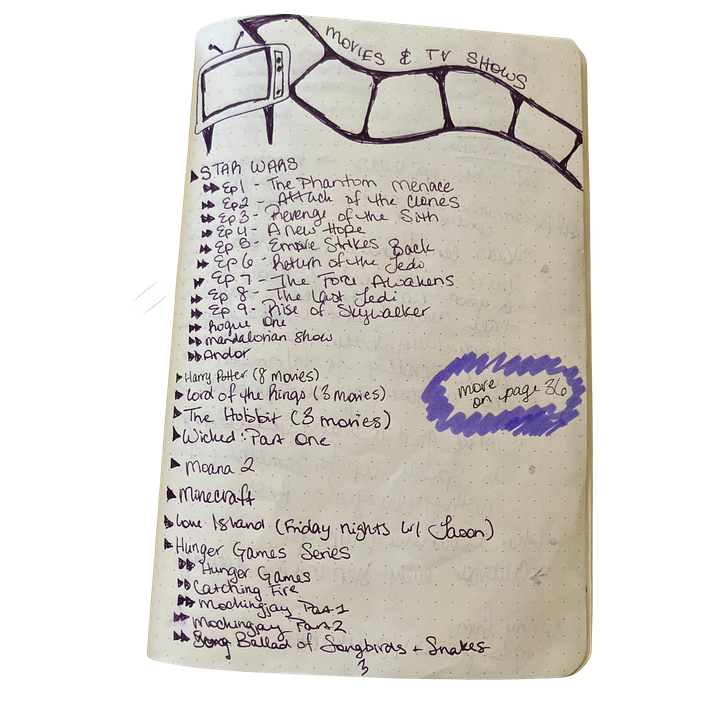 MOVIES & TV SHOWS
STAR WARS
Ep 1 - The Phantom Menace
Ep 2 - Attack of the Clones
Ep 3 - Revenge of the Sith
Ep 4 - A New Hope
Ep 5 - Empire Strikes Back
Ep 6 - Return of the Jedi
Ep 7 - The Force Awakens
Ep 8 - The Last Jedi
Ep 9 - Rise of Skywalker
Rogue One
mandalorian show
Andor
Harry Potter (8 movies)
Lord of the Rings (3 movies)
more
on page 36
The Hobbit (3 movies)
Wicked: Part One
Moana 2
Minecraft
Love Island (Friday nights w/ Jason)
Hunger Games Series
Hunger Games
Catching Fire
Mockingjay Part 1
Mockingjay Part 2
Ballad of Songbirds + Snakes
3